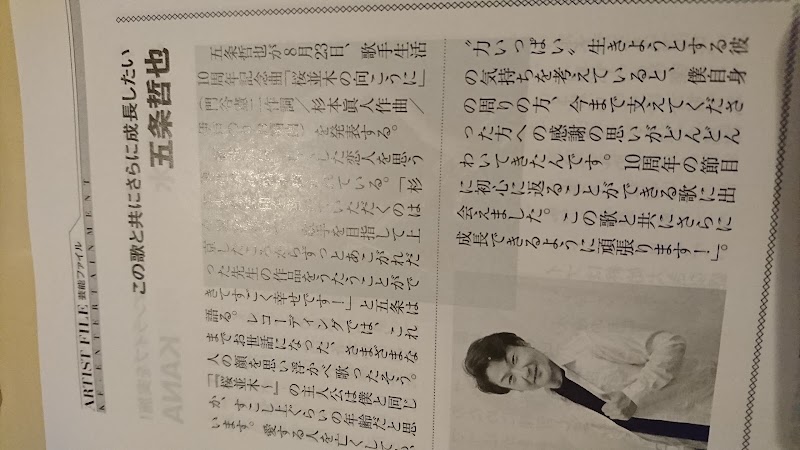 ARTIST FILE 芸能ファイル
KE-ENTERTAINMENT
この歌と共にさらに成長したい
五条哲也
五条哲也が8月23日、歌手生活
10周年記念曲「桜並木の向こうに」
作詞／杉本眞人作曲／
を発表する。
した恋人を思う
れている。「杉
いただくのは
手を目指して上
京したころからずっとあこがれだ
った先生の作品をうたうことがで
きてすごく幸せです！」と五条は
語る。レコーディングでは、これ
までお世話になった、さまざまな
人の顔を思い浮かべ歌ったそう。
「『桜並木―』の主人公は僕と同じ
か、すこし上くらいの年齢だと思
います。愛する人を亡くしても、
〝力いっぱい〟生きようとする彼
の気持ちを考えていると、僕自身
の周りの方、今まで支えてくださ
った方への感謝の思いがどんどん
わいてきたんです。10周年の節目
に初心に返ることができる歌に出
会えました。この歌と共にさらに
成長できるように頑張ります！」。